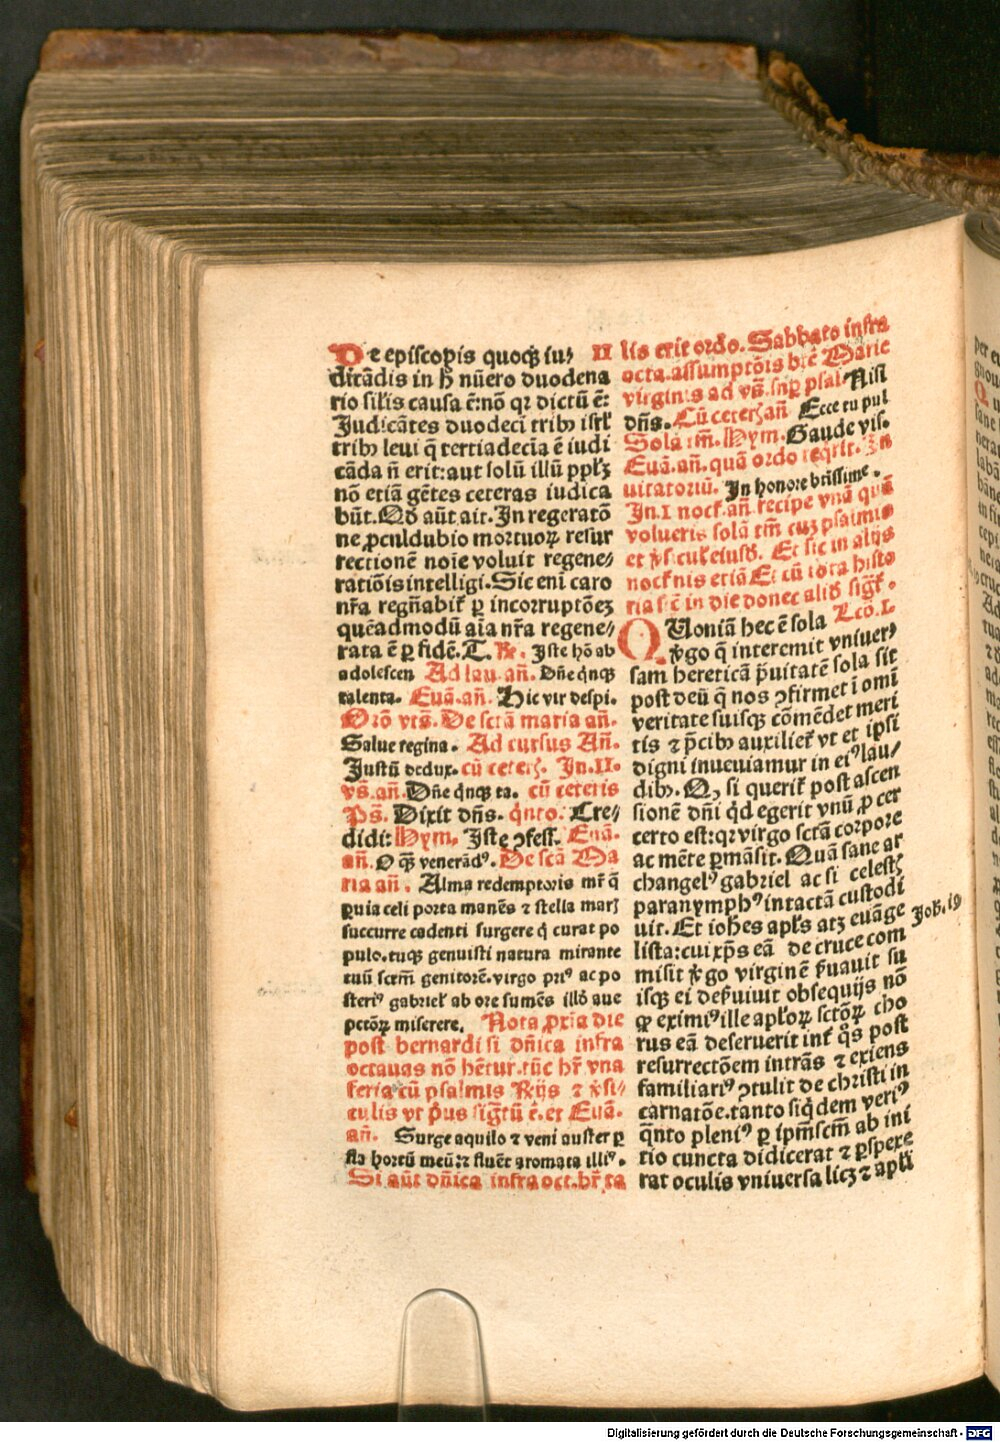 De episcopis quoqꝫ iu⸗
dicādis in h̄ nūero duodena
rio sil̄is causa ē: nō qꝛ dictū ē:
Judicātes duodecī tribꝰ isrl̄
tribꝰ leui q̄ tertiadecīa ē iudi
cāda n̄ erit: aut solū illū ppl̄ꝫ
nō etiā gētes ceteras iudica
būt. Qđ aūt ait. In regeratō
ne ꝓculdubio mortuoꝝ resur
rectionē noīe voluit regene⸗
ratiōis intelligi. Sic enī caro
nr̄a regn̄abit̄ ꝑ incorruptōeꝫ
quēadmodū aīa nr̄a regene⸗
rata ē ꝑ fidē. T. R̄. Iste hō ab
adolescen Ad lau. an̄. Dn̄e qͥnqꝫ
talenta. Euā. an̄. Hic vir despi.
Orō vts̄. De sctā maria an̄.
Salue regina. Ad cursus An̄.
Justū dedux. cū ceterꝭ. In. II.
vs̄. an̄. Dn̄e qͥnqꝫ ta. cū ceteris
Ps̄. Dixit dn̄s. qͥnto. Cre⸗
didi: Hym. Iste ꝯfess. Euā.
an̄. O qͣꝫ venerādꝰ. De scā Ma
ria an̄. Alma redemptoris mr̄ q̄
ꝑuia celi porta manēs ⁊ stella marꝭ
succurre cadenti surgere qͥ curat po
pulo. tuqꝫ genuisti natura mirante
tuū scm̄ genitorē. virgo priꝰ ac po
steriꝰ gabriel̄ ab ore sumēs illđ aue
pctōꝝ miserere. Nota ꝓxīa die
post bernardi si dn̄ica infra
octauas nō hētur. tūc hr̄ vna
feria cū psalmis Rijs ⁊ v̓si⸗
culis vt p̄us sigtū ē. et Euā.
an̄. Surge aquilo ⁊ veni auster ꝑ
fla hortū meū: ⁊ fluēt aromata illiꝰ.
Si aūt dn̄ica infra oct. hr̄. ta
II lis erit ordo. Sabbato infra
octa. assumptōis btē Marie
virginis ad vs̄. suꝑ psal. Nisi
dn̄s. Cū ceterꝭ an̄ Ecce tu pul
Sola tm̄. Hym. Gaude vis.
Euā. an̄. quā ordo reqrit. In
uitatoriū. In honore btissime.
In. I noct̄. an̄. recipe vnā quā
volueris solā tm̄ cuꝫ psalmis
et v̓siculꝭ eiusđ. Et sic in alijs
noct̄nis etiā Et cū tota histo
ria sic̄ in die donec aliđ sigt̄.
Lcō. I.
QUoniā hec ē sola
v̓go q̄ interemit vniuer⸗
sam hereticā p̄uitatē sola sit
post deū q̄ nos ꝯfirmet ī omī
veritate suisqꝫ cōmēdet meri
tis ⁊ p̄cibꝰ auxiliet̄ vt et ipsi
digni inueniamur in eiꝰ lau⸗
dibꝰ. Qꝫ si querit̄ post ascen
sionē dn̄i qͥd egerit vnū ꝓ cer
certo est: qꝛ virgo sctā corpore
ac mēte ꝑmāsit. Quā sane ar
changelꝰ gabriel ac si celestꝭ
paranymphꝰ intactā custodi
uit. Et iohēs apl̄s atꝫ euāge
lista: cui xp̄s eā de cruce com
misit v̓go virginē s̓uauit su
isqꝫ ei des̓uiuit obsequijs nō
qꝫ eximiꝰ ille apl̄oꝝ sctōꝝ cho
rus eā deseruerit int̄ qͦs post
resurrectōem intrās ⁊ exiens
familiariꝰ ꝯtulit de christi in
carnatōe. tanto siqͥdem veriꝰ
qͣnto pleniꝰ ꝑ ip̄m scm̄ ab ini
tio cuncta didicerat ⁊ ꝑspexe
rat oculis vniuersa licꝫ ⁊ apl̄i
Joh. 19
Digitalisierung gefördert durch die Deutsche Forschungsgemeinschaft - DFG